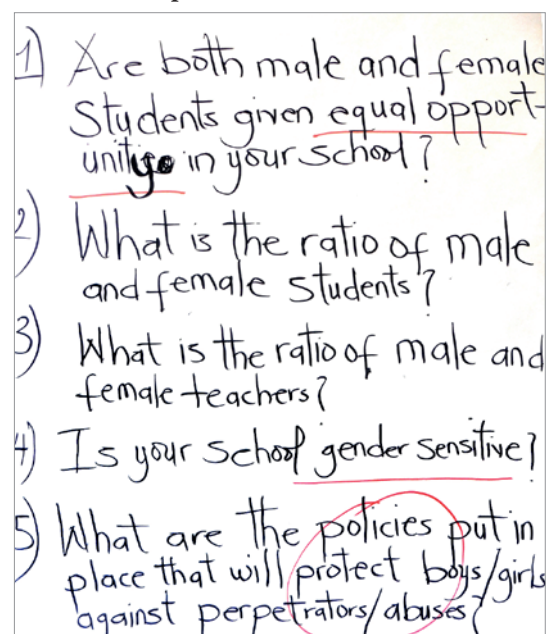 1) Are both male and female
Students given equal opport-
unity in your school?
2) What is the ratio of male
and female students?
3) What is the ratio of male and
female teachers?
4) Is your school gender sensitive?
5) What are the policies put in
place that will protect boys/girls
against perpetrators/abuses?